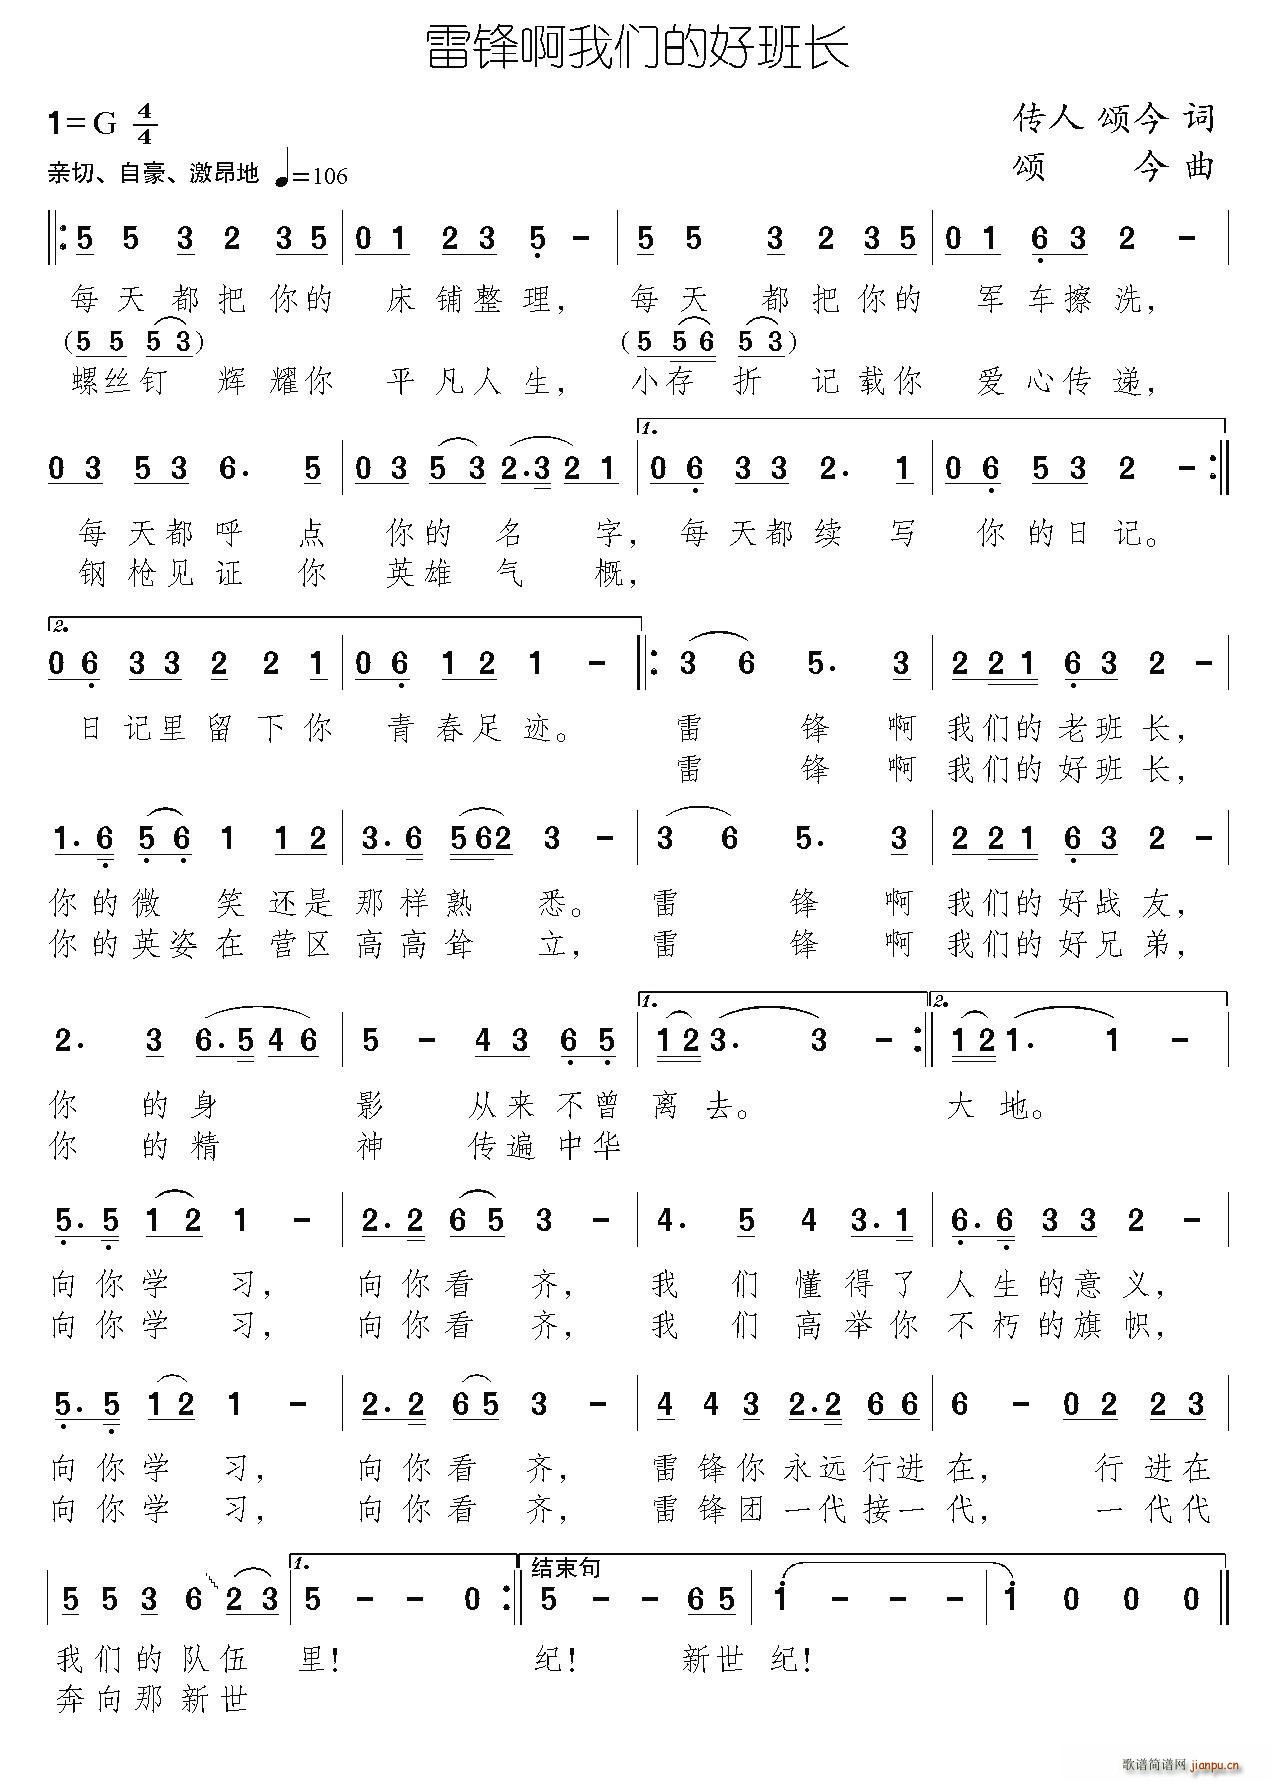 雷锋啊我们的好班长
1=G 4/4
传人 颂今 词
亲切、自豪、激昂地 ♩=106
颂 今 曲
5 5 3 2 3 5 | 0 1 2 3 5 - | 5 5 3 2 3 5 | 0 1 6 3 2 - |
每天都把你的 床铺整理， 每天 都把你的 军车擦洗，
(5 5 5 3) (5 5 6 5 3)
螺丝钉 辉耀你 平凡人生， 小存折 记载你 爱心传递，
1.
0 3 5 3 6. 5 | 0 3 5 3 2.3 2 1 | 0 6 3 3 2. 1 | 0 6 5 3 2 - :||
每天都呼 点 你的名 字， 每天都续 写 你的日记。
钢枪见证 你 英雄气 概，
2.
0 6 3 3 2 2 1 | 0 6 1 2 1 - ||: 3 6 5. 3 | 2 2 1 6 3 2 - |
日记里留下你 青春足迹。 雷 锋 啊 我们的老班长，
雷 锋 啊 我们的好班长，
1. 6 5 6 1 1 2 | 3. 6 5 6 2 3 - | 3 6 5. 3 | 2 2 1 6 3 2 - |
你的微 笑还是 那样熟 悉。 雷 锋 啊 我们的好战友，
你的英姿在营区 高高耸 立， 雷 锋 啊 我们的好兄弟，
1. 2.
2. 3 6.5 4 6 | 5 - 4 3 6 5 | 1 2 3. 3 - :|| 1 2 1. 1 - |
你 的身 影 从来不曾 离 去。 大 地。
你 的精 神 传遍中华
5. 5 1 2 1 - | 2. 2 6 5 3 - | 4. 5 4 3. 1 | 6. 6 3 3 2 - |
向你学 习， 向你看 齐， 我 们 懂得了 人生的意义，
向你学 习， 向你看 齐， 我 们 高举你 不朽的旗帜，
5. 5 1 2 1 - | 2. 2 6 5 3 - | 4 4 3 2.2 6 6 | 6 - 0 2 2 3 |
向你学 习， 向你看 齐， 雷锋你永远行进 在， 行进在
向你学 习， 向你看 齐， 雷锋团一代接一 代， 一代代
1. 结束句
5 5 3 6 2 3 | 5 - - 0 :|| 5 - - 6 5 | 1 - - - | 1 0 0 0 ||
我们的队伍 里！ 纪！ 新世 纪！
奔向那新世
歌谱简谱网 jianpu.cn